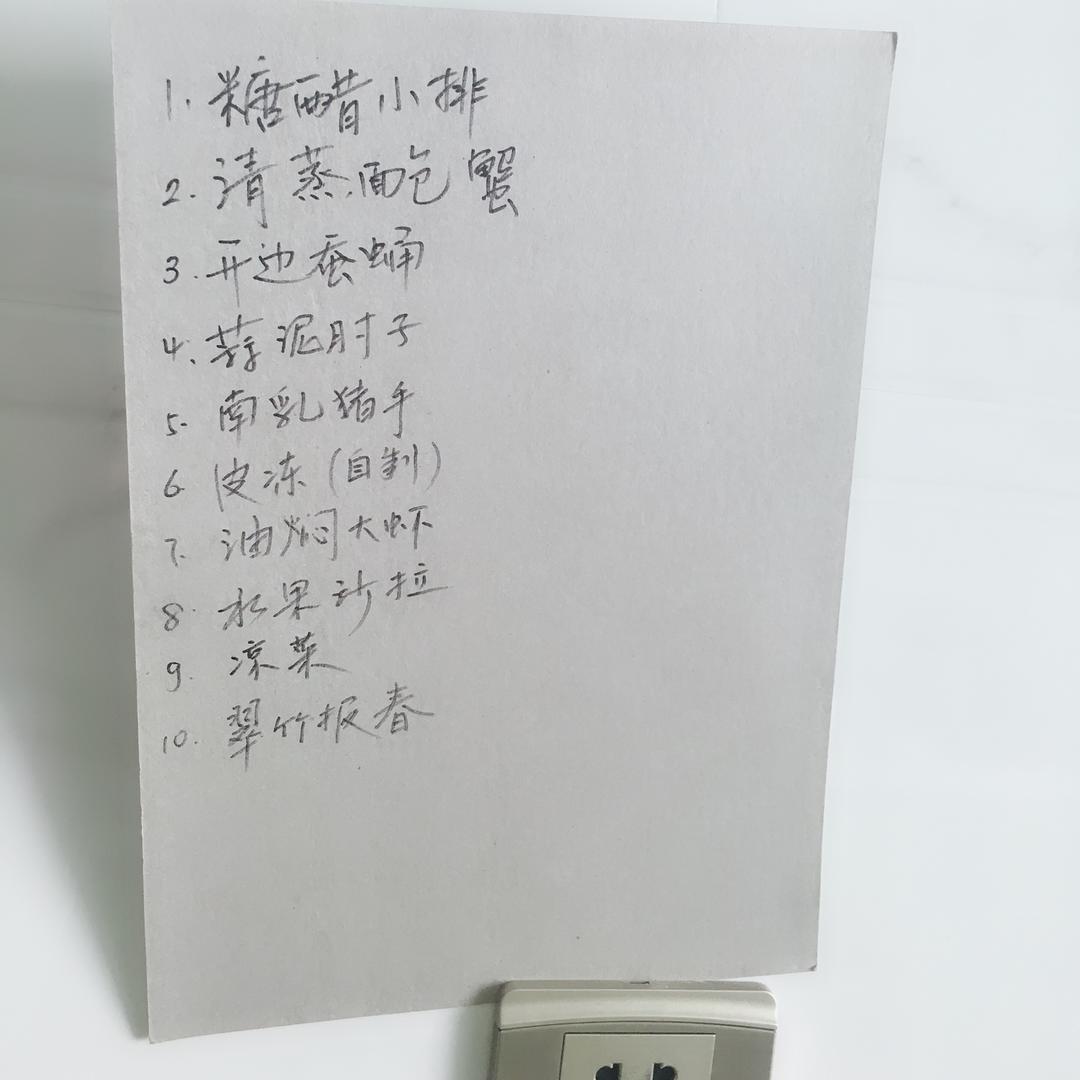 1. 糖醋小排
2. 清蒸面包蟹
3. 开边蚕蛹
4. 蒜泥肘子
5. 南乳猪手
6. 皮冻(自制)
7. 油焖大虾
8. 水果沙拉
9. 凉菜
10. 翠竹报春